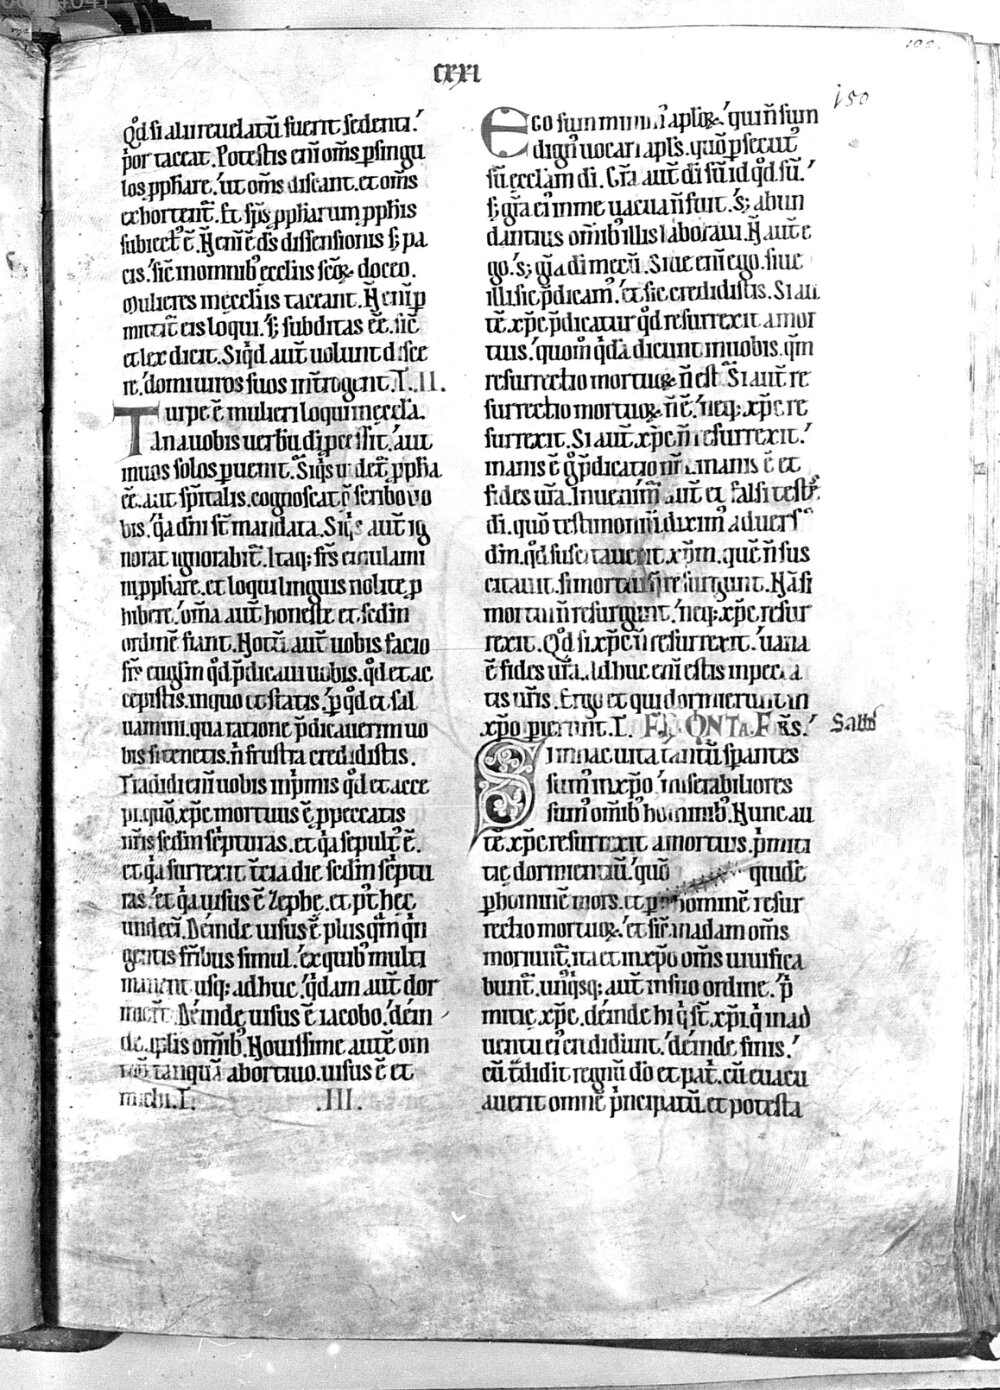 CXXI
150
Qd̄ si alii reuelatū fuerit sedenti.'
prior taceat. Potestis eni̅ om̅s p singu
los pphare. ut om̅s discant. et om̅s
exhortent̅. Et sp̅s ppharum pphis
subiect' ē. N̄ eni̅ ē ds̄ dissensionis s; pa
cis. sic̄ in omnib; eccl̅iis sc̄oꝝ doceo.
Mulieres in eccl̅iis taceant. N̄ eni̅ p
mittit̅ eis loqui. s; subditas ēē. sic̄
et lex dicit. Siqd̄ aut̅ uolunt disce
re.' domi uiros suos int̅rogent. L. II.
Turpe ē mulieri loqui in eccl̅a.
An a uobis uerbū di̅ pcessit. aut
in uos solos puenit. Siq̅s uidet̅ ppha
ēē. aut sp̅italis. cognoscat q̄ scribo uo
bis. q̅a dn̅i st̅ mandata. Siq̅s aut̅ ig
norat ignorabit̅. Itaq; fr̅s emulami
ni pphare. et loqui linguis nolite p
hibere. om̅a aut̅ honeste et sedm̅
ordinē fiant. Notū aut̅ uobis facio
fr̅s eugl̅m qd̄ p̅dicaui uobis. qd̄ et ac
cepistis. in quo et statis. p qd̄ et sal
uamini. qua ratione p̅dicauerim uo
bis si tenetis. n̄ frustra credidistis.
Tradidi eni̅ uobis inp̅mis qd̄ et acce
pi. quō xp̅c mortuus ē p peccatis
nr̅is sedm̅ sc̅pturas. et q̅a sepult' ē.
et q̅a surrexit t̅cia die sedm̅ sc̅ptu
ras. et q̅a uisus ē Zephe. et p̅t hec
undeci̅. Deinde uisus ē plusq̅m qn̅
gentis fr̅ibus simul. ex quib; multi
manent usq; adhuc. q̅dam aut̅ dor
mier̅t. Deinde uisus ē iacobo. dein
de aplis omib;. Nouissime autē om
niū tanquā abortiuo. uisus ē et
michi. L. .III.
Ego sum minim' aploꝝ. qui n̄ sum
dign' uocari apl̅s. quō p̅secut'
sū eccl̅am di̅. Gr̅a aut̅ di̅ sū id qd̄ sū.'
s; gr̅a ei' in me uacua n̄ fuit. s; abun
dantius omib; illis laboraui. N̄ aut̅ e
go. s; gr̅a di̅ mecū. Siue eni̅ ego. siue
illi sic p̅dicam'. et sic credidistis. Si au
tē xp̅c p̅dicatur qd̄ resurrexit a mor
tuis. quom̅ q̅dā dicunt in uobis. qm̅
resurrectio mortuoꝝ n̄ est. Si aut̅ re
surrectio mortuoꝝ n̄ ē. neq; xp̅c re
surrexit. Si aut̅ xp̅c n̄ resurrexit.'
inanis ē g̊ p̅dicatio nr̅a. inanis ē et
fides ur̅a. Inuenim' aut̅ et falsi testes
di̅. quō testimoniū dixim' aduersus
dm̅. qd̄ suscitauerit xp̅m. quē n̄ sus
citauit. si mortui n̄ resurgunt. Nā si
mortui n̄ resurgunt. neq; xp̅c resur
rexit. Qd̄ si xp̅c n̄ resurrexit. uana
ē fides ur̅a. Adhuc eni̅ estis in pecca
tis ur̅is. Ergo et qui dormierunt in
xp̅o pierunt. L.
Si in hac uita tantū sp̅antes
sum' in xp̅o. miserabiliores
sum' omib; hominib;. Nunc au
tē xp̅c resurrexit a mortuis. p̅miti
tie dormientiū. quō quidē
p hominē mors. et p hominē resur
rectio mortuoꝝ. et sic̄ in adam om̅s
moriunt̅. ita et in xp̅o om̅s uiuifica
bunt̅. unq̅sq; aut̅ in suo ordine. p̅
mitie xp̅c. deinde hi q̅ st̅ xp̅i q̅ in ad
uentu ei' credidiunt. deinde finis.'
cū t̅didit regnū do̅ et pat̅. cū euacu
auerit omnē p̅ncipatū. et potesta